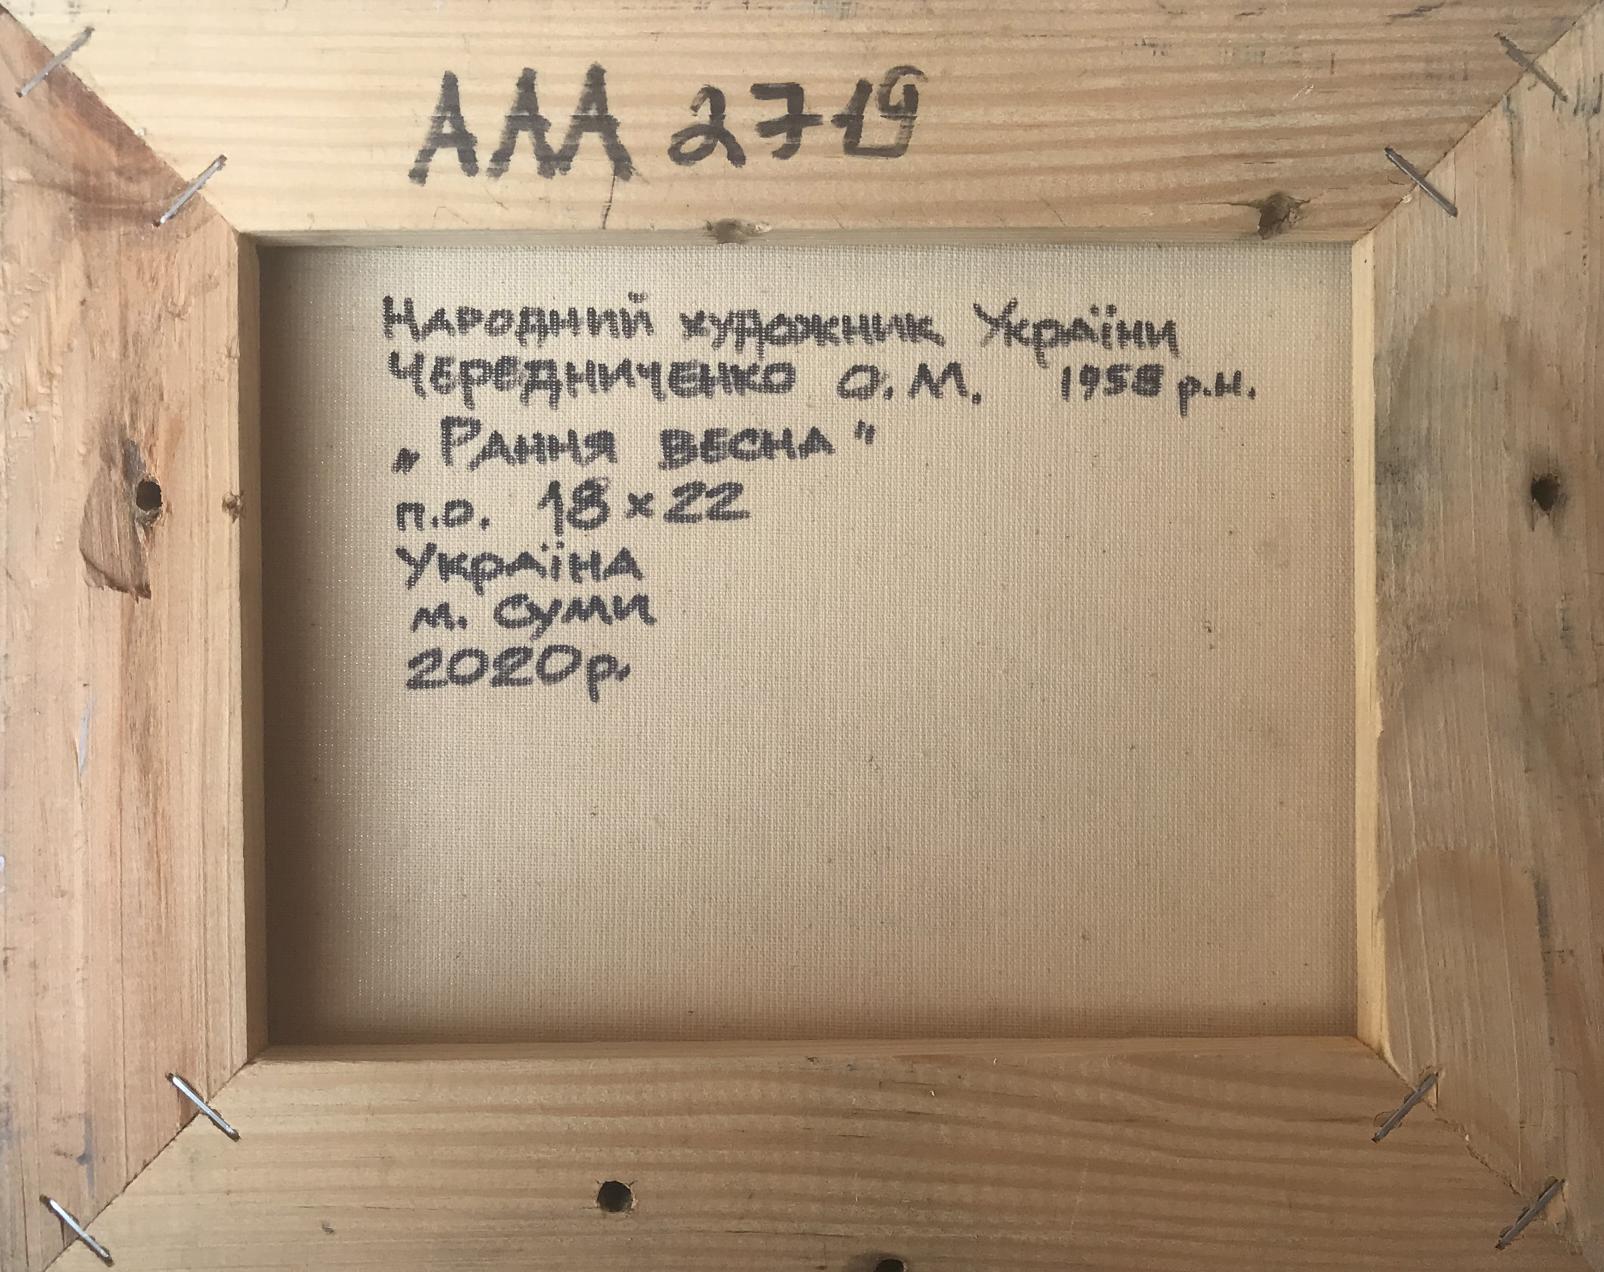 ААА 2719
Народний художник України
Чередниченко О.М. 1958 р.н.
„Рання весна"
п.о. 18×22
Україна
м. Суми
2020р.